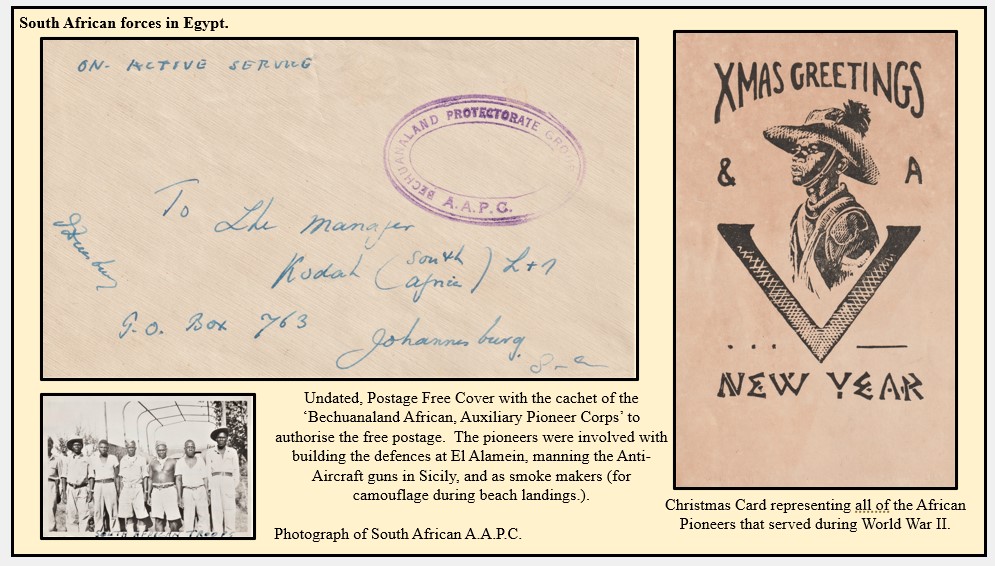 South African forces in Egypt.
ON ACTIVE SERVICE
BECHUANALAND PROTECTORATE GRO
A.A.P.C.
To The Manager
Kodak (South Africa) Ltd
G.O. Box 763
Johannesburg.
XMAS GREETINGS
& A
V
. . . —
NEW YEAR
SOUTH AFRICAN TROOPS
Undated, Postage Free Cover with the cachet of the
‘Bechuanaland African, Auxiliary Pioneer Corps’ to
authorise the free postage. The pioneers were involved with
building the defences at El Alamein, manning the Anti-
Aircraft guns in Sicily, and as smoke makers (for
camouflage during beach landings.).
Photograph of South African A.A.P.C.
Christmas Card representing all of the African
Pioneers that served during World War II.